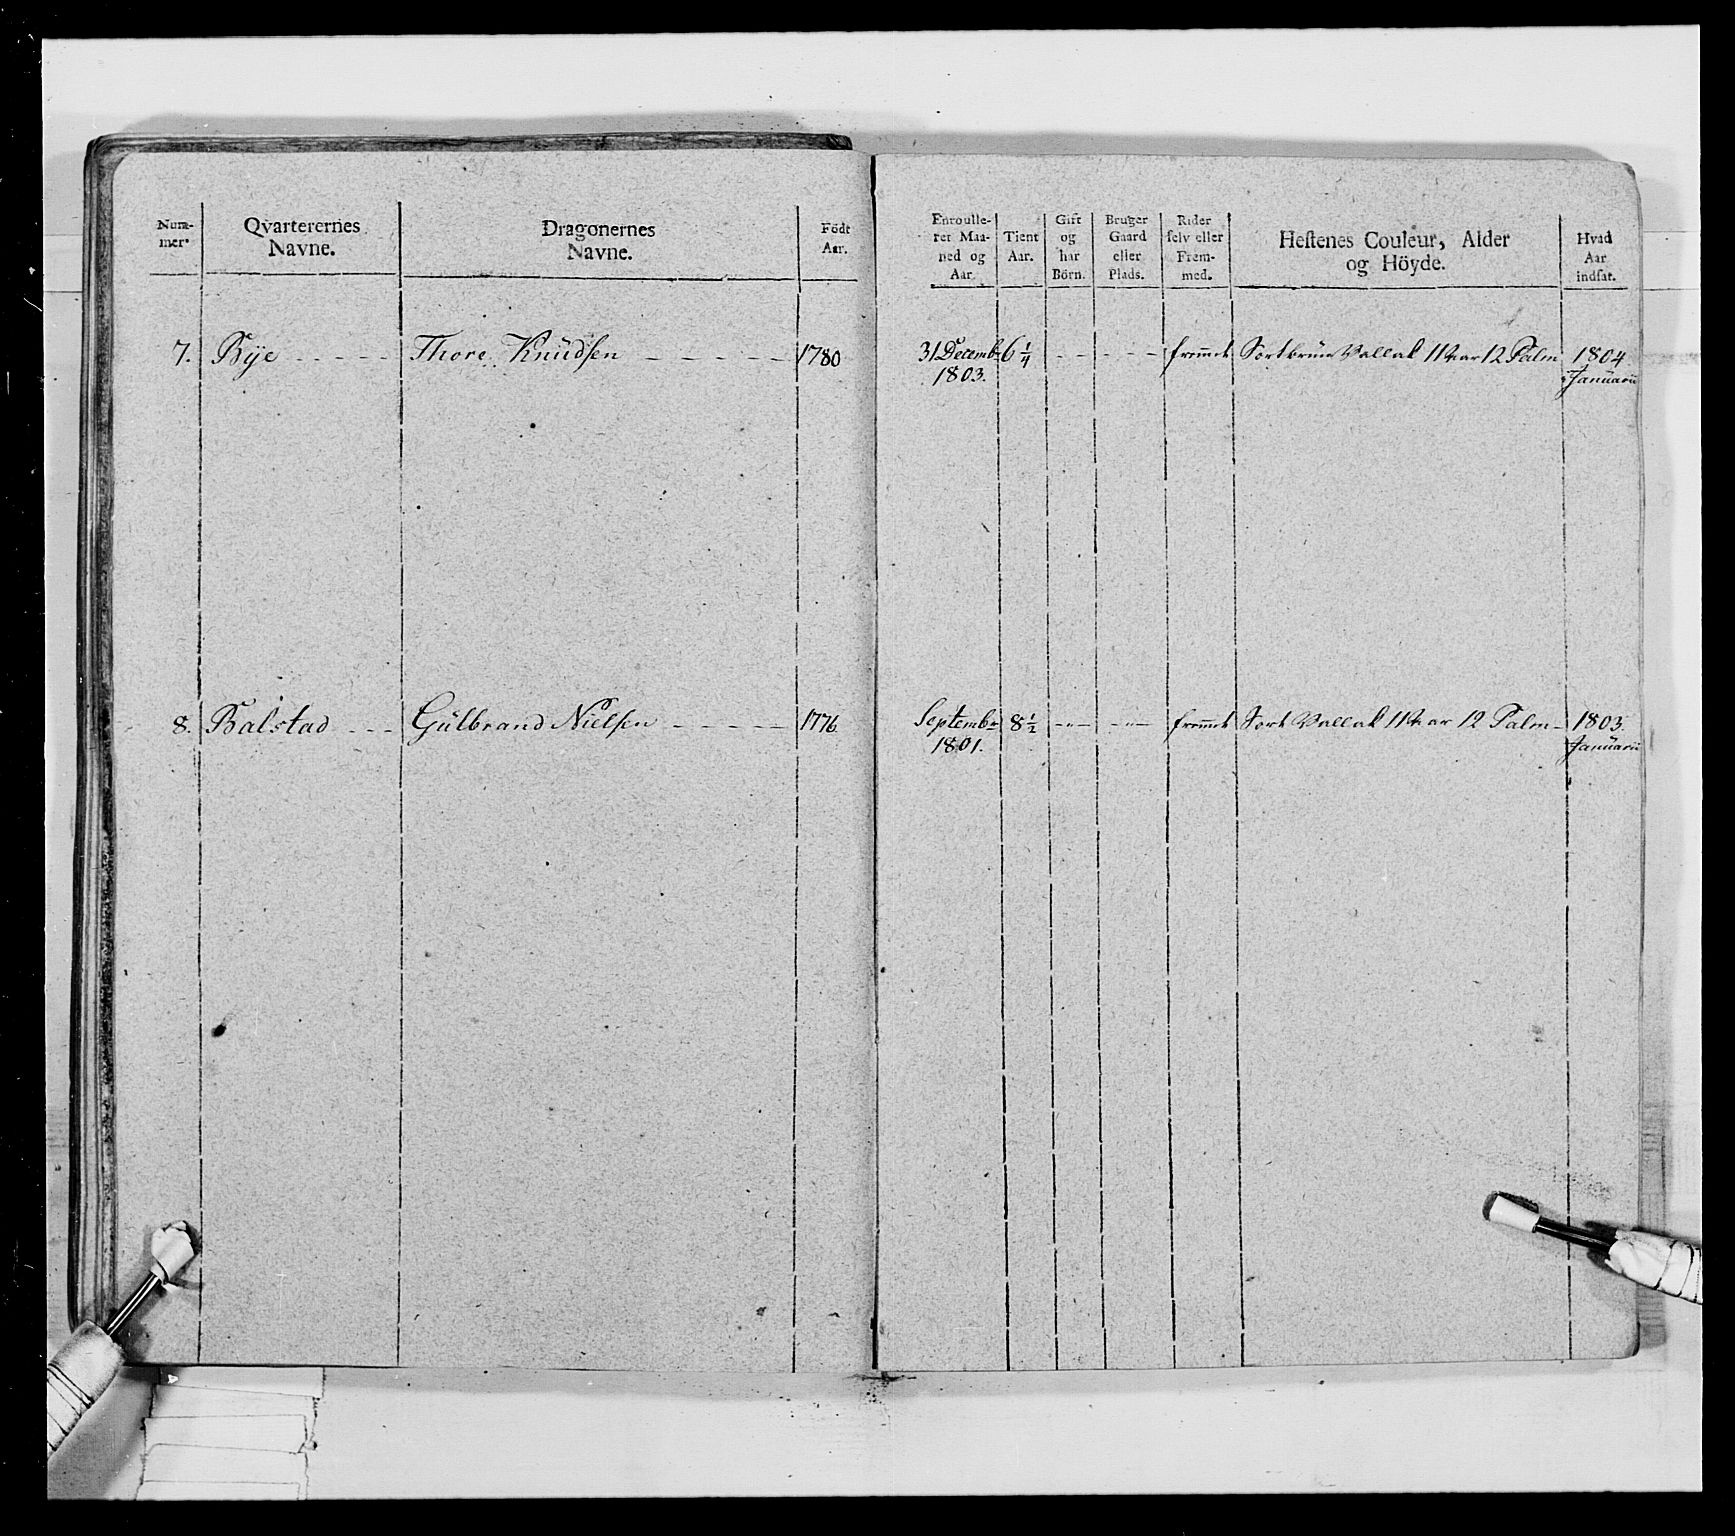 Num-
mer.
Qvarterernes
Navne.
Dragonernes
Navne.
Födt
Aar.
Enroulle-
ret Maa-
ned og
Aar.
Tient
Aar.
Gift
og
har
Börn.
Bruger
Gaard
eller
Plads.
Rider
ſelv eller
Frem-
med.
Heſtenes Couleur, Alder
og Höyde.
Hvad
Aar
indſat.
7. Bÿe - - - - - Thore Knüdſen - - - - - - 1780 31 Decemb. 6 1/4 - - - - - fremmet Sortbrün Vallak 11 Aar 12 Palm 1804
1803. Januarii
8. Balstad - - - Gülbrand Nielſen - - - - - 1776 Septembr 8 1/2 - " - - " - fremmet Sort Vallak 11 Aar 12 Palm - 1803.
1801. Januarii